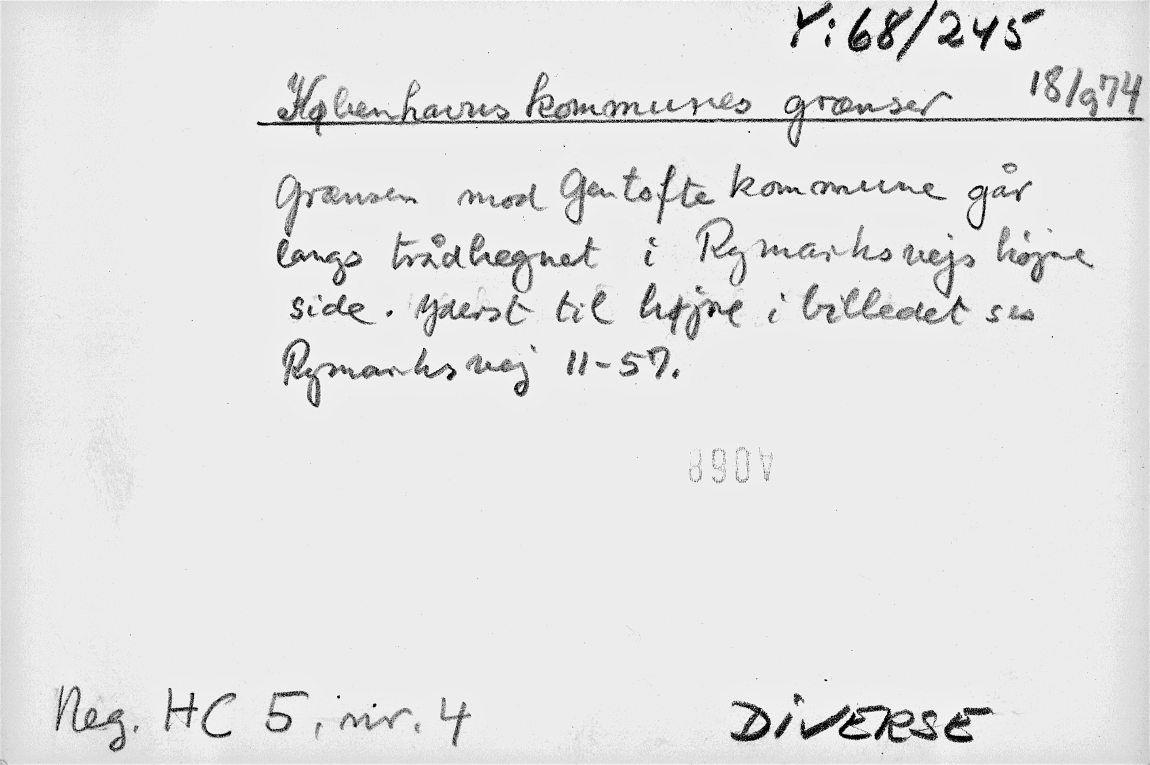 Y: 68/245
Københavns kommunes grænser 18/9 74
Grænsen mod Gentofte kommune går
langs trådhegnet i Rymarksvejs højre
side. Yderst til højre i billedet ses
Rymarksvej 11-57.
Neg. HC 5, nr. 4
DIVERSE